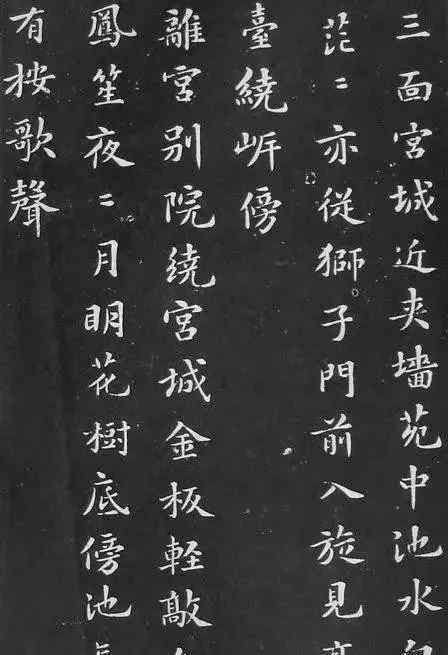 三面宮城近夾墻苑中池水
茫〻亦從獅子門前入旋見
臺繞岍傍
離宮别院繞宮城金板軽敲
鳳笙夜〻月明花樹底傍池
有按歌聲